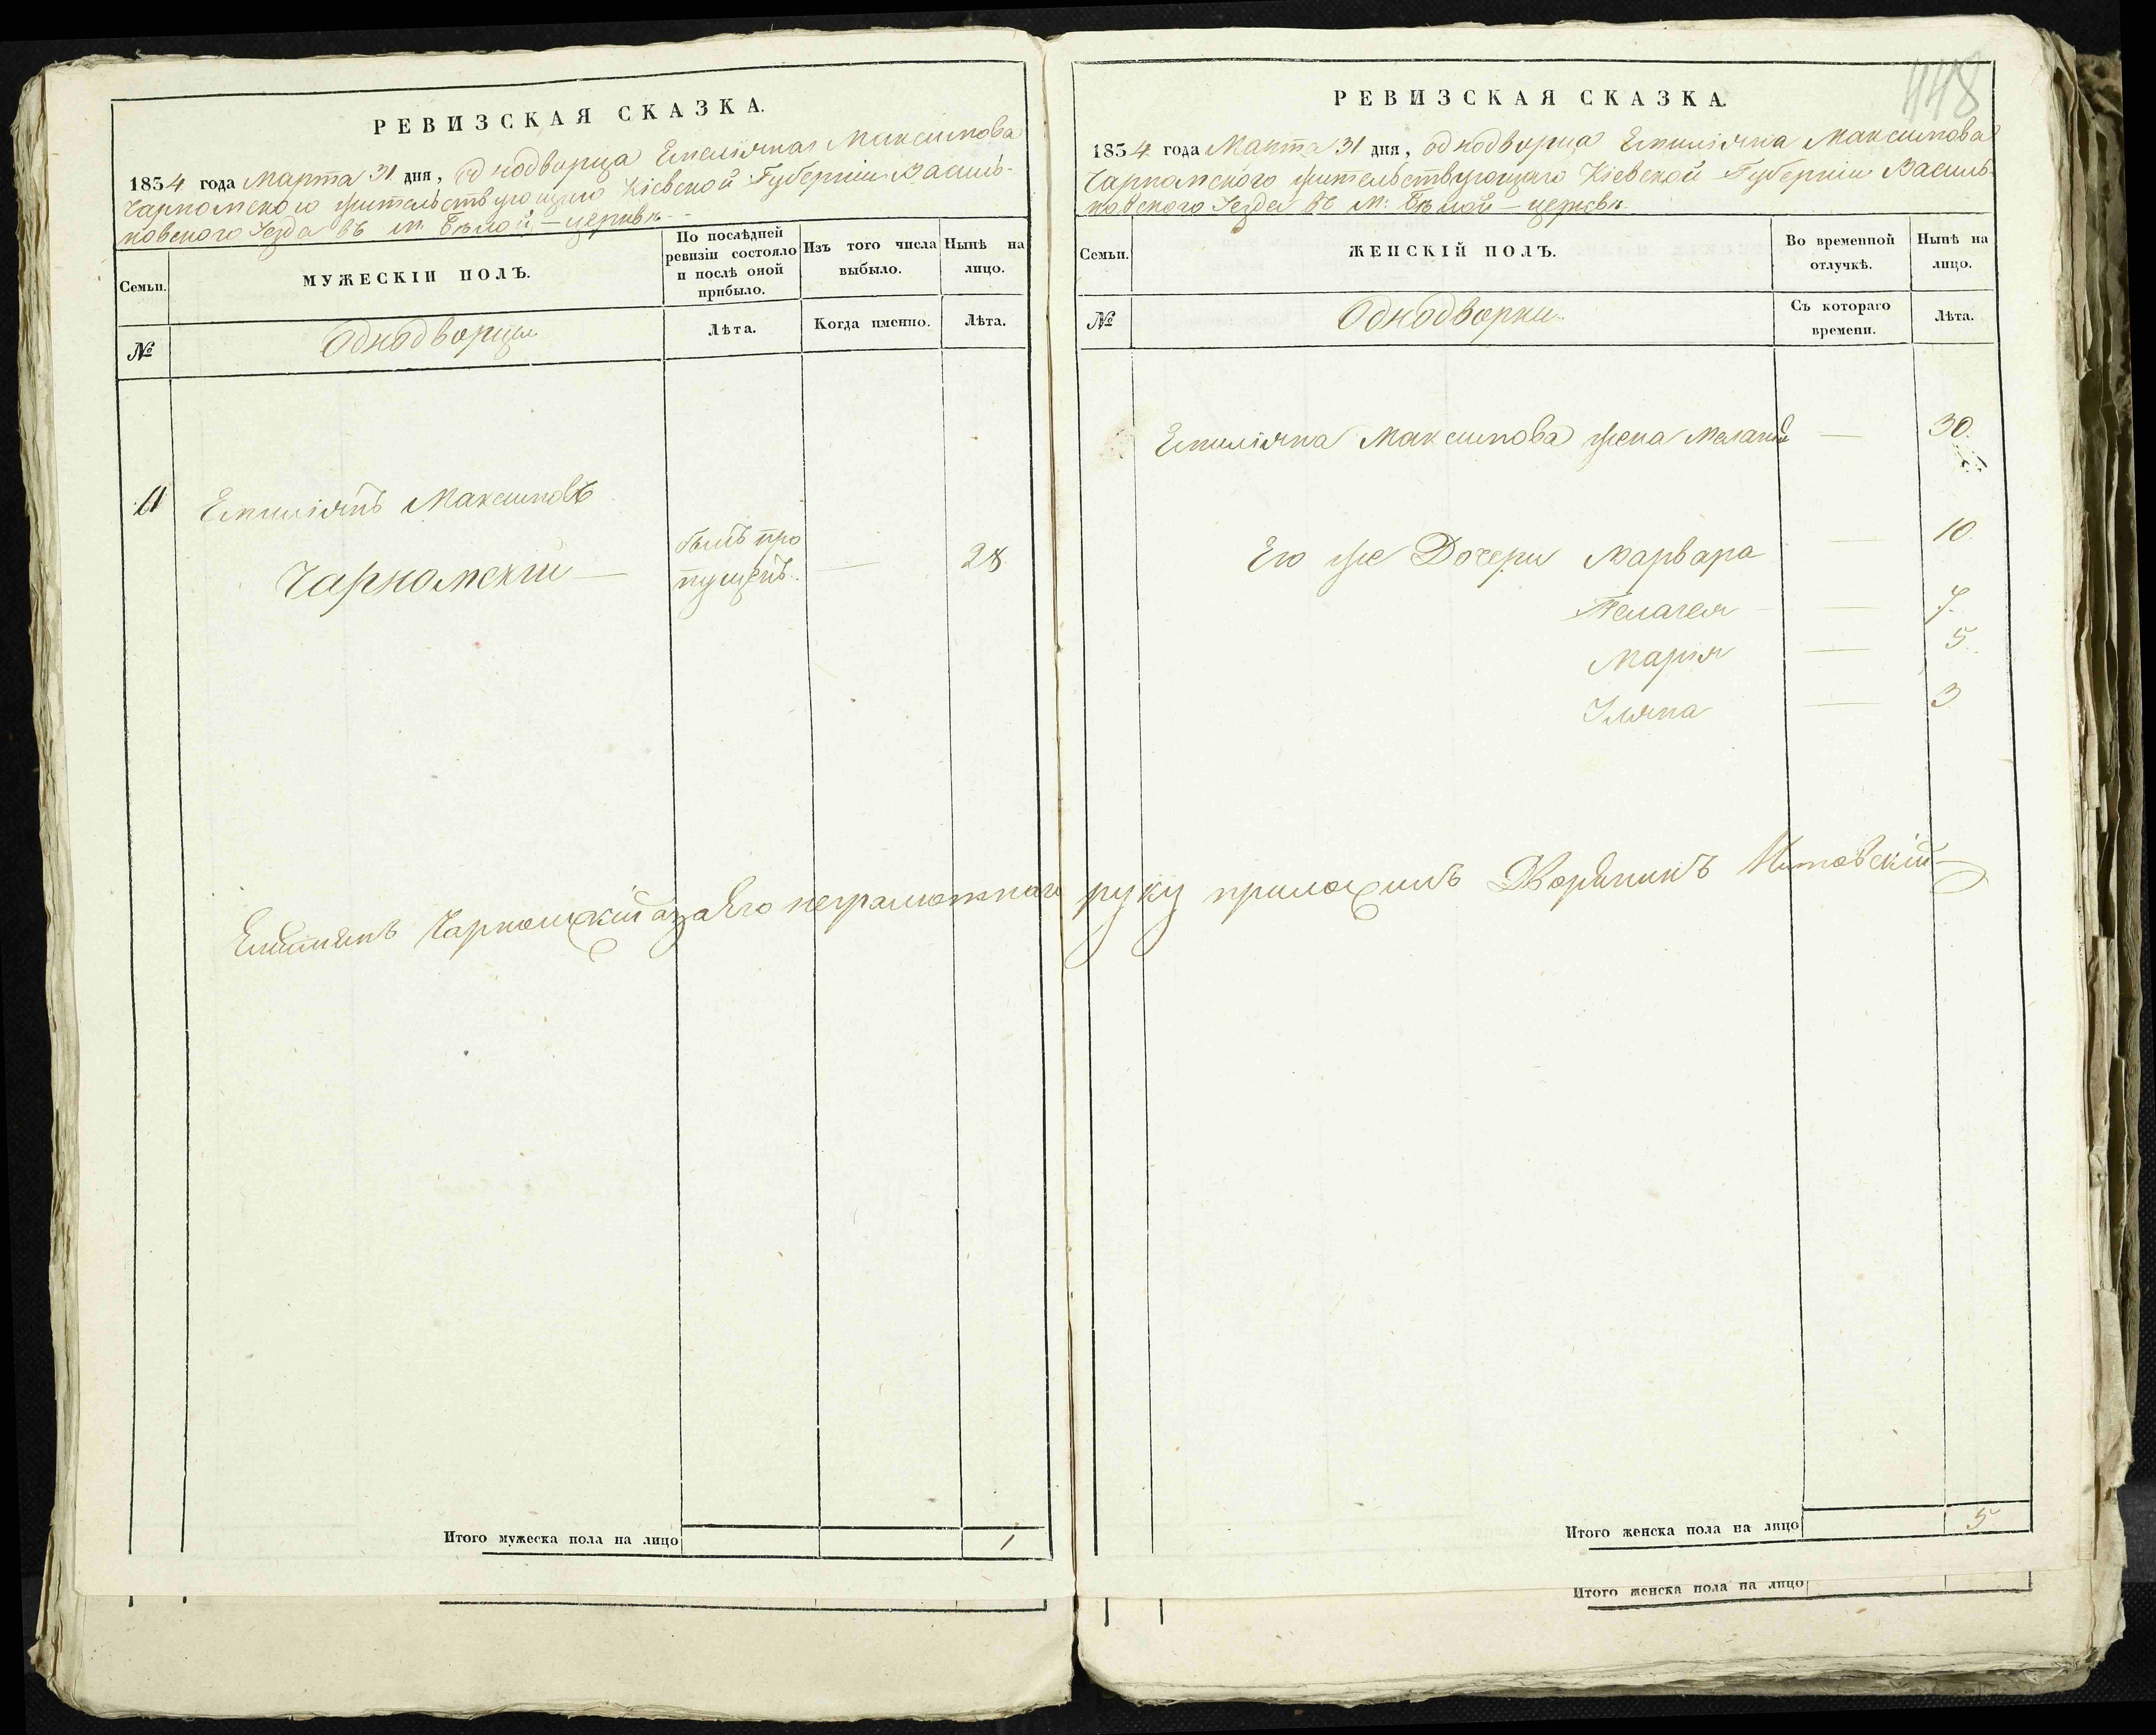 РЕВИЗСКАЯ СКАЗКА.
1834 года Марта 31 дня, однодворца Емилiяна Максимова
Чарномского жительствующаго Кiевской Губернiи Василь-
ковского Уезда въ м. Бѣлой-церквѣ
Семьи.
МУЖЕСКIЙ ПОЛЪ.
По послѣдней ревизiи состояло и послѣ оной прибыло.
Изъ того числа выбыло.
Нынѣ на лицо.
№
Однодворцы
Лѣта.
Когда именно.
Лѣта.
Емилiянъ Максимовъ
Чарномскiй —
былъ про
пущенъ.
—
28
Итого мужеска пола на лицо
1
448
РЕВИЗСКАЯ СКАЗКА.
1834 года Марта 31 дня, однодворца Емилiяна Максимова
Чарномского жительствующаго Кiевской Губернiи Василь-
ковского Уезда въ м: Бѣлой-церквѣ
Семьи.
ЖЕНСКIЙ ПОЛЪ.
Во временной отлучкѣ.
Нынѣ на лицо.
№
Однодворки.
Съ котораго времени.
Лѣта.
Емилiяна Максимова жена Меланiя — 30.
Его же Дочери Варвара — 10.
Пелагея — 7.
Марiя — 5.
Уляна — 3
Емилiянъ Чарномскiй а за Его неграмотнаго руку приложилъ Дворянинъ
Итого женска пола на лицо
5
Итого женска пола на лицо